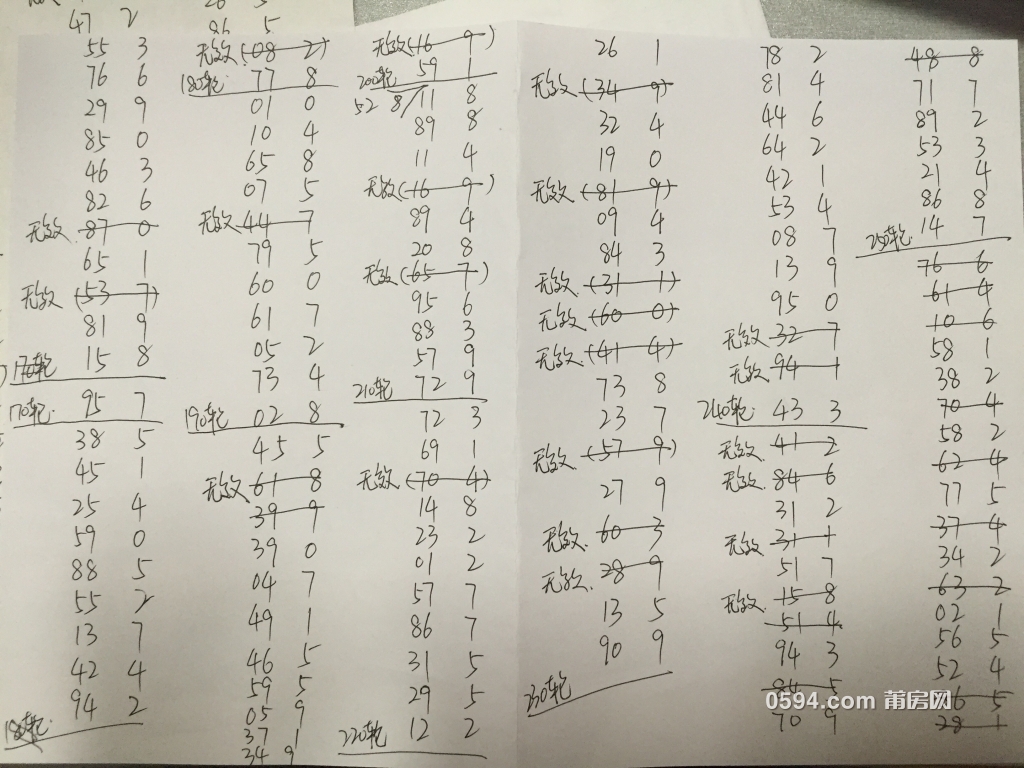 47 2
55 3
76 6
29 9
85 0
46 3
82 6
无效 87 0
65 1
无效 (53 7)
81 9
15 8
170轮 95 7
38 5
45 1
25 4
59 0
88 5
55 2
13 7
42 4
94 2
86 5
无效 (08 2)
180轮 77 8
01 0
10 4
65 8
07 5
无效 44 7
79 5
60 0
61 7
05 2
73 4
190轮 02 8
45 5
无效 61 8
39 9
39 0
04 7
49 1
46 5
59 5
05 9
37 1
34 9
无效 (16 9)
200轮 59 1
52 8/11 8
89 8
11 4
无效 (16 9)
89 4
20 8
无效 (65 7)
95 6
88 3
57 9
210轮 72 9
72 3
69 1
无效 (70 4)
14 8
23 2
01 2
57 7
86 7
31 5
29 5
220轮 12 2
26 1
无效 (34 9)
32 4
19 0
无效 (81 9)
09 4
84 3
无效 (31 1)
无效 (60 0)
无效 (41 4)
73 8
23 7
无效 (57 9)
27 9
无效 60 3
无效 28 9
13 5
90 9
230轮
78 2
81 4
44 6
64 2
42 1
53 4
08 7
13 9
95 0
无效 32 7
无效 94 1
240轮 43 3
无效 41 2
无效 84 6
31 2
无效 31 1
51 7
无效 15 8
51 4
94 3
84 5
70 9
48 8
71 7
89 2
53 3
21 4
86 8
250轮 14 7
76 6
61 4
10 6
58 1
38 2
70 4
58 2
62 4
77 5
37 4
34 2
63 2
02 1
56 5
52 4
6 5
28 1
0594.com 莆房网